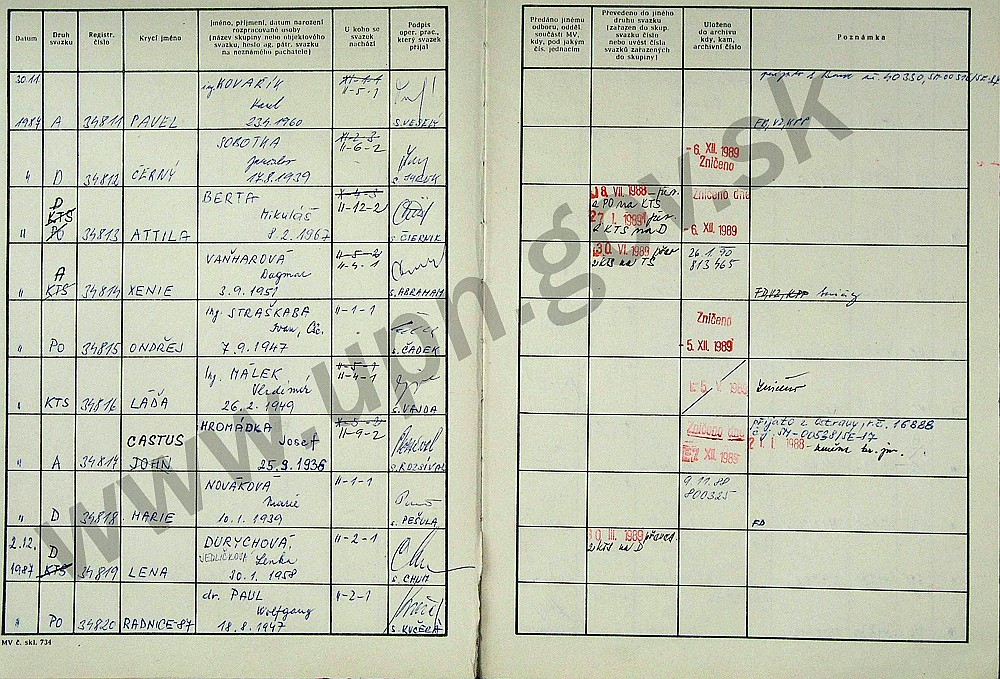 Datum
Druh svazku
Registr. číslo
Krycí jméno
Jméno, příjmení, datum narození
rozpracované osoby
(název skupiny nebo objektového
svazku, heslo ag. pátr. svazku
na neznámého pachatele)
U koho se
svazek
nachází
Podpis
oper. prac.,
který svazek
přijal
Předáno jinému
odboru, odděl.
součásti MV,
kdy, pod jakým
čís. jednacím
Převedeno do jiného
druhu svazku
(zařazen do skup.
svazku číslo
nebo uvést čísla
svazků zařazených
do skupiny)
Uloženo
do archivu
kdy, kam,
archivní číslo
Poznámka
30.11.
1987 A 34811 PAVEL
ing. KOVAŘÍK
Karel
23.4.1960
XI-1-1
II-5-1
s. VESELÝ
FD, VZ, KPP
" D 34812 ČERNÝ
SOBOTKA
Jaroslav
17.8.1939
II-6-2
-6. XII. 1989
Zničeno
D
KTS
" PO 34813 ATTILA
BERTA
Mikuláš
8.2.1967
X-4-3
II-12-2
s. ČIERNIK
18. VII. 1988 - přev.
z PO na KTS
27. I. 1989 přev.
z KTS na D
Zničeno dne
-6. XII. 1989
A
" KTS 34814 XENIE
VAŇHAROVÁ
Dagmar
3.9.1951
II-5-2
II-4-1
s. ABRAHAM
30. VI. 1988 přev
z KTS na TS
26.1.90
813465
FD, VZ, KPP
" PO 34815 ONDŘEJ
Ing. STRAŠKABA
Ivan, CSc.
7.9.1947
II-1-1
s. ČADEK
Zničeno
-5. XII. 1989
" KTS 34816 LÁĎA
Ing. MÁLEK
Vladimír
26.2.1949
II-5-1
II-4-1
s. VAJDA
Zničeno
CASTUS
" A 34817 JOHN
HROMÁDKA
Josef
25.9.1936
X-5-2
II-9-2
s. ROZSÍVAL
Zničeno dne
XII. 1989
přijato z Ostravy, r.č. 16888
č.j. SM-00538/SE-17
" D 34818 MARIE
NOVÁKOVÁ
Marie
10.1.1939
II-1-1
s. PEŠULA
9.11.88
800325
FD
2.12.
D
1987 KTS 34819 LENA
DURYCHOVÁ,
JEDLIČKOVÁ Lenka
30.1.1958
II-2-1
s. CHUM
30. III. 1989 převed.
z KTS na D
" PO 34820 RADNICE-87
dr. PAUL
Wolfgang
18.8.1947
II-2-1
s. KUČERA
MV č. skl. 734
www.upn.gov.sk